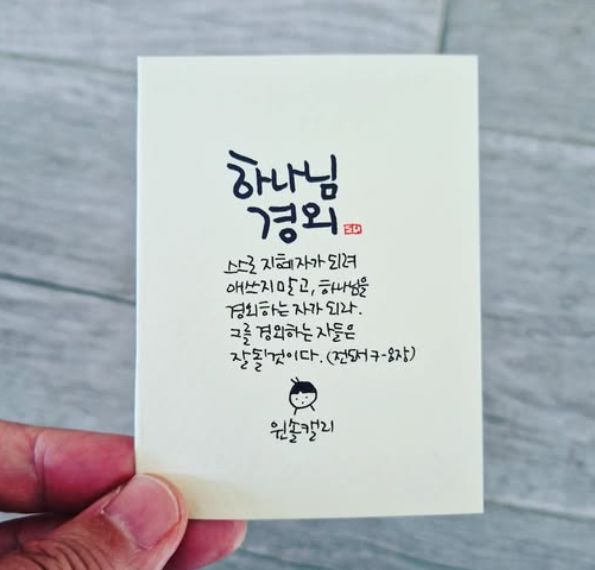 하나님
경외
스스로 지혜자가 되려
애쓰지 말고, 하나님을
경외하는 자가 되라.
그를 경외하는 자들은
잘 될 것이다. (전도서 7-8장)
윈솔캘리